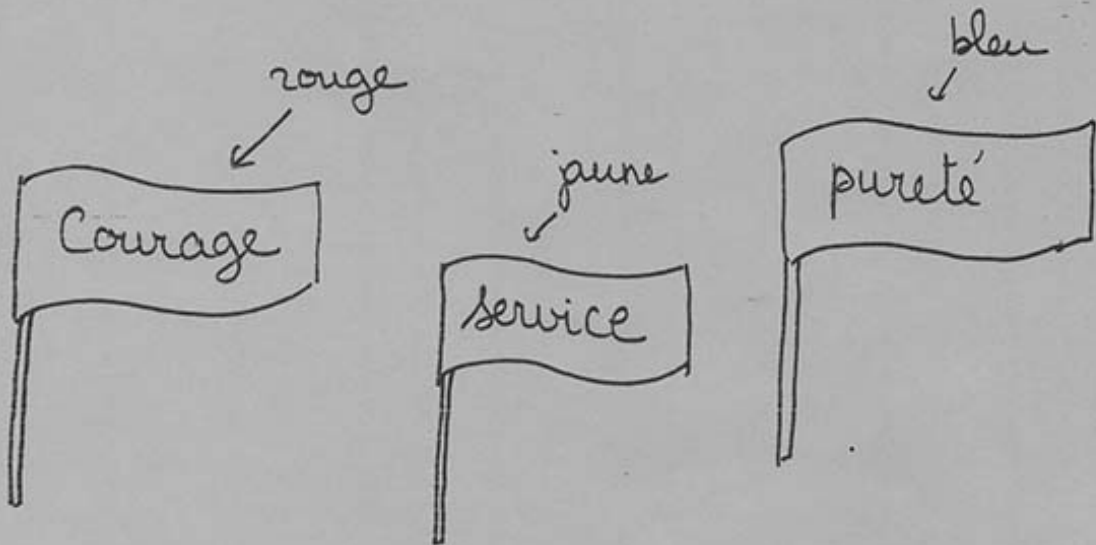 rouge
Courage
jaune
service
bleu
pureté